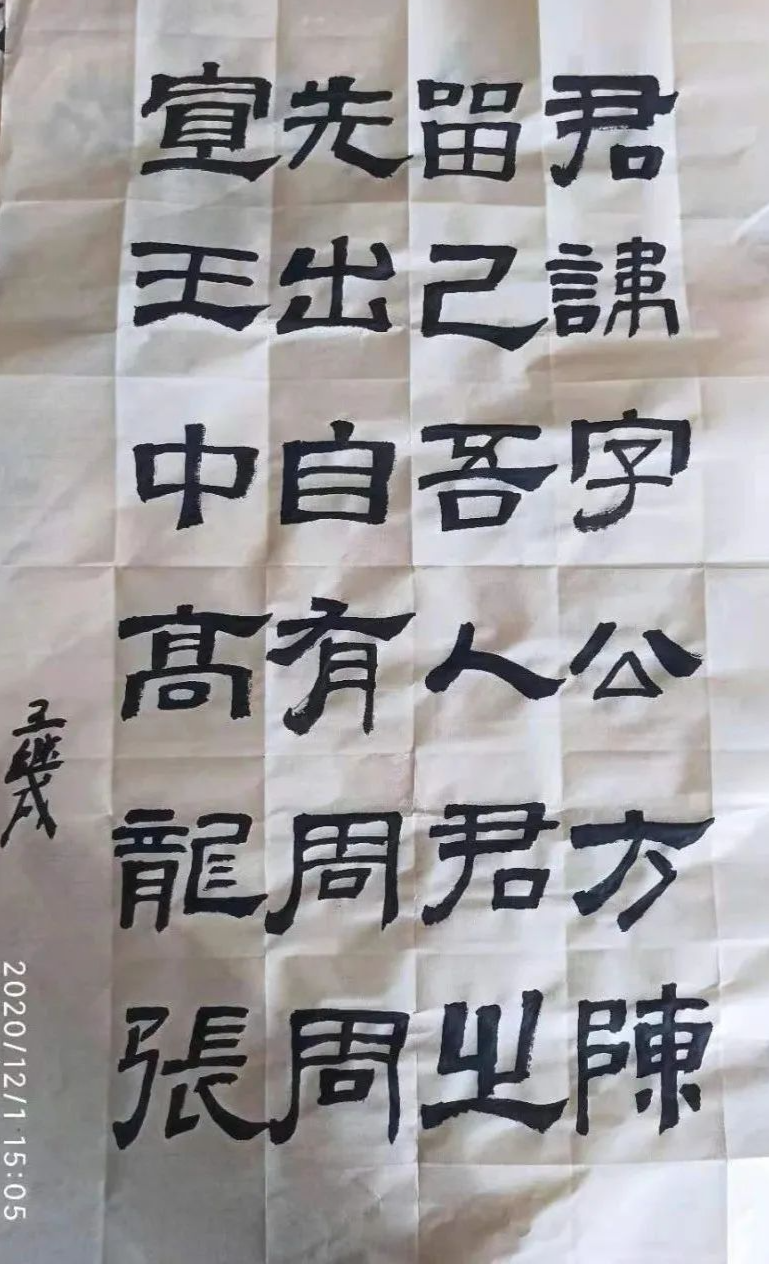 君諱字公方陳
留己吾人君之
先出自有周周
宣王中高龍張
王継成
2020/12/1 15:05